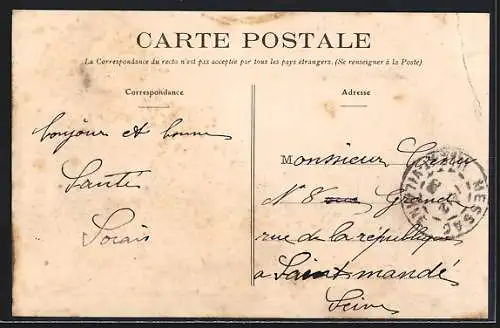 CARTE POSTALE
La Correspondance du recto n'est pas acceptée par tous les pays étrangers. (Se renseigner à la Poste)
Correspondance
bonjour et bonne
Santé
Adresse
Monsieur
N° 8 Grande
rue de la république
a Saint mandé
Seine
MESSAC